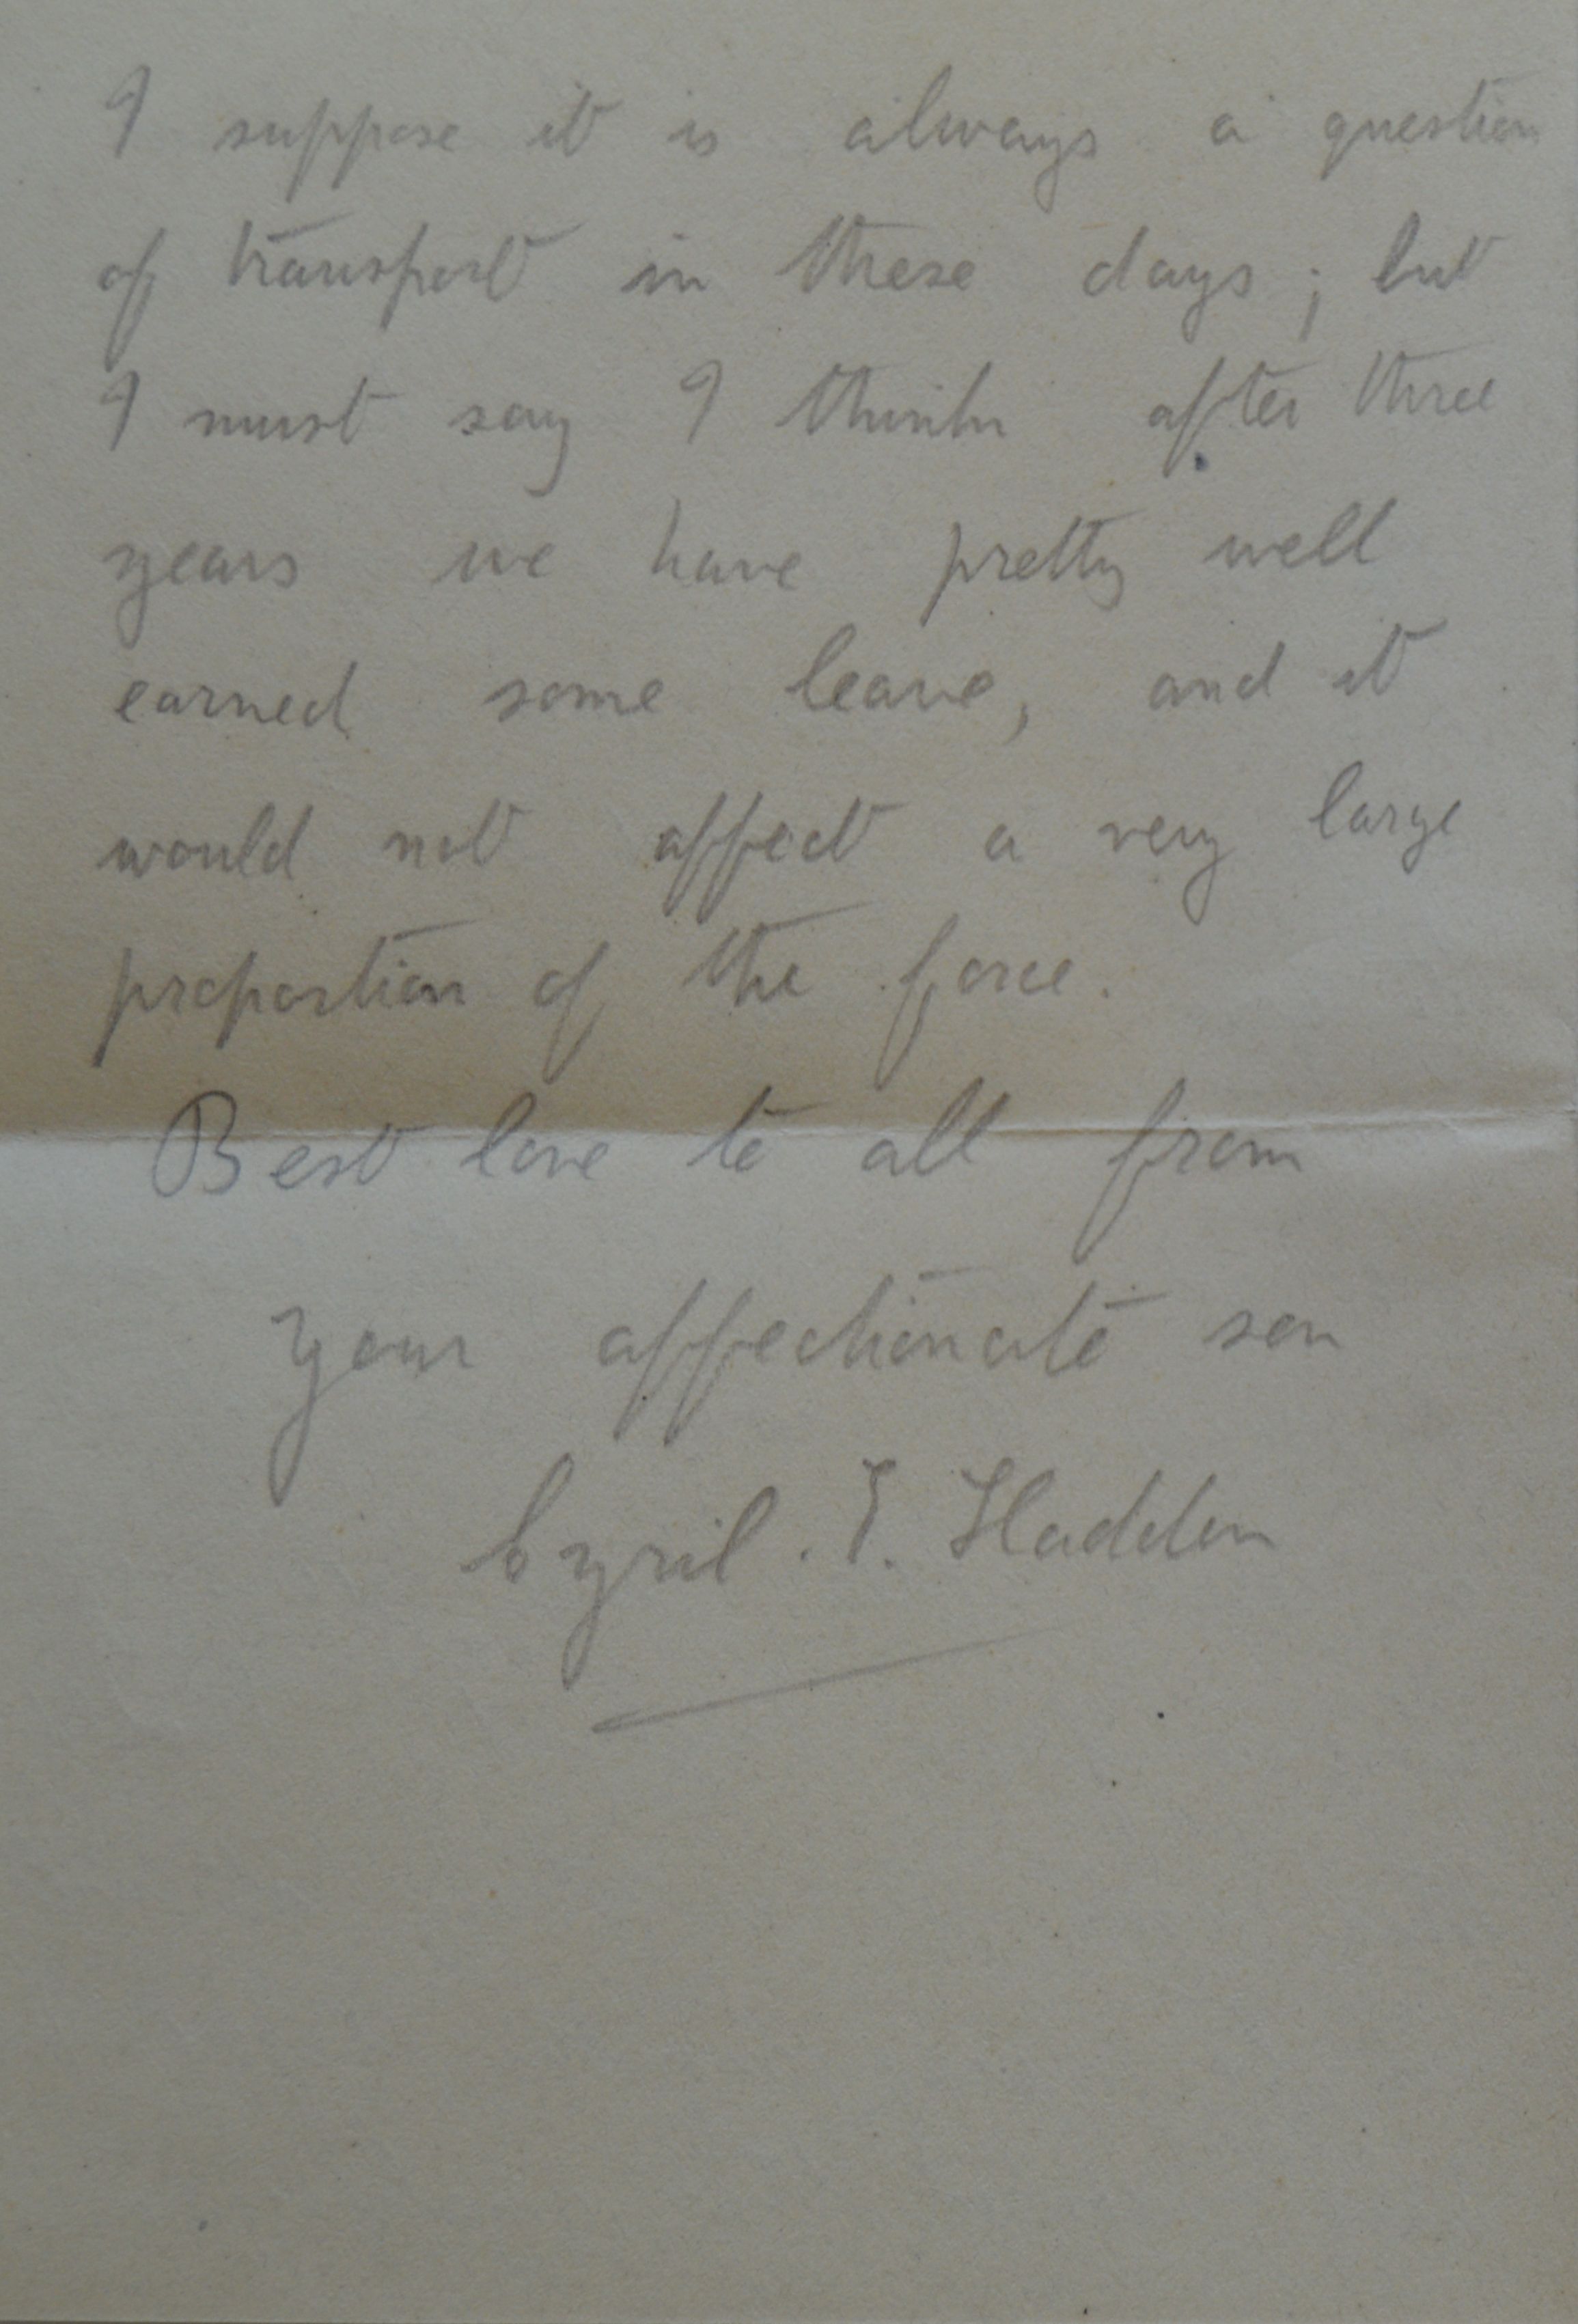 I suppose it is always a question
of transport in these days; but
I must say I think after three
years we have pretty well
earned some leave, and it
would not affect a very large
proportion of the force.
Best love to all from
your affectionate son
Cyril. I. Hadden